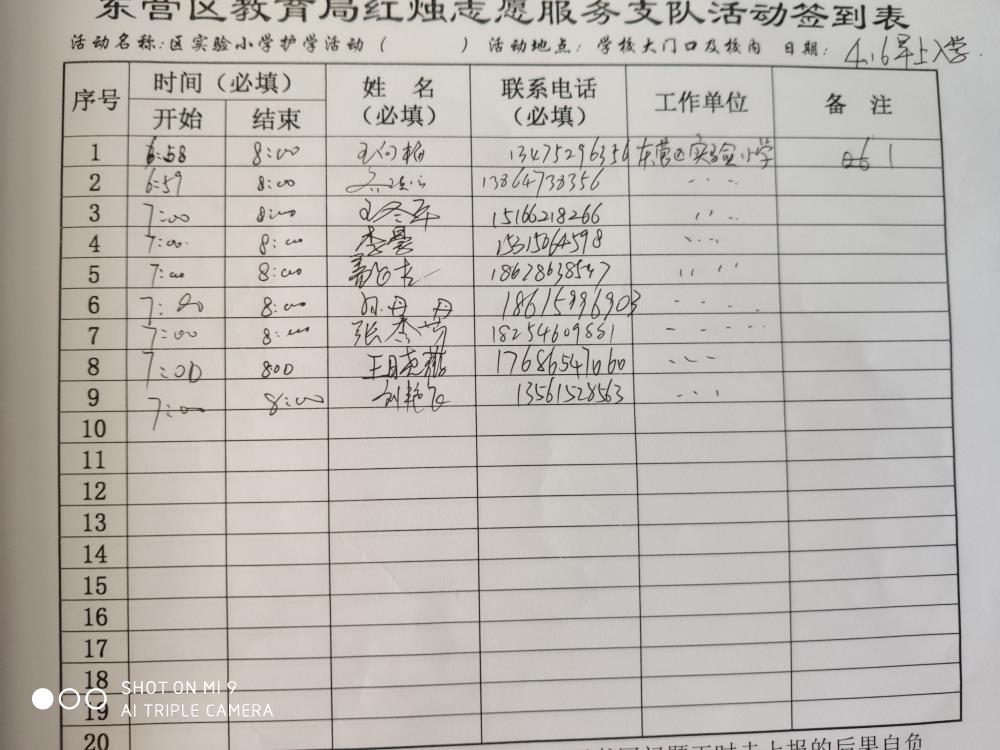 东营区教育局红烛志愿服务支队活动签到表
活动名称:区实验小学护学活动（ ）活动地点：学校大门口及校内 日期：4.16早上入学
序号 时间（必填） 姓名（必填） 联系电话（必填） 工作单位 备注
开始 结束
1 6:58 8:00 13475296356 东营区实验小学
2 6:59 8:00 13864738356
3 7:00 8:00 15166218266
4 7:00 8:00 李景 15315064598
5 7:00 8:00 18628638547
6 7:00 8:00 18615996903
7 7:00 8:00 18254609861
8 7:00 8:00 17686547060
9 7:00 8:00 刘艳飞 13561528563
10
11
12
13
14
15
16
17
18
19
20
SHOT ON MI 9
AI TRIPLE CAMERA